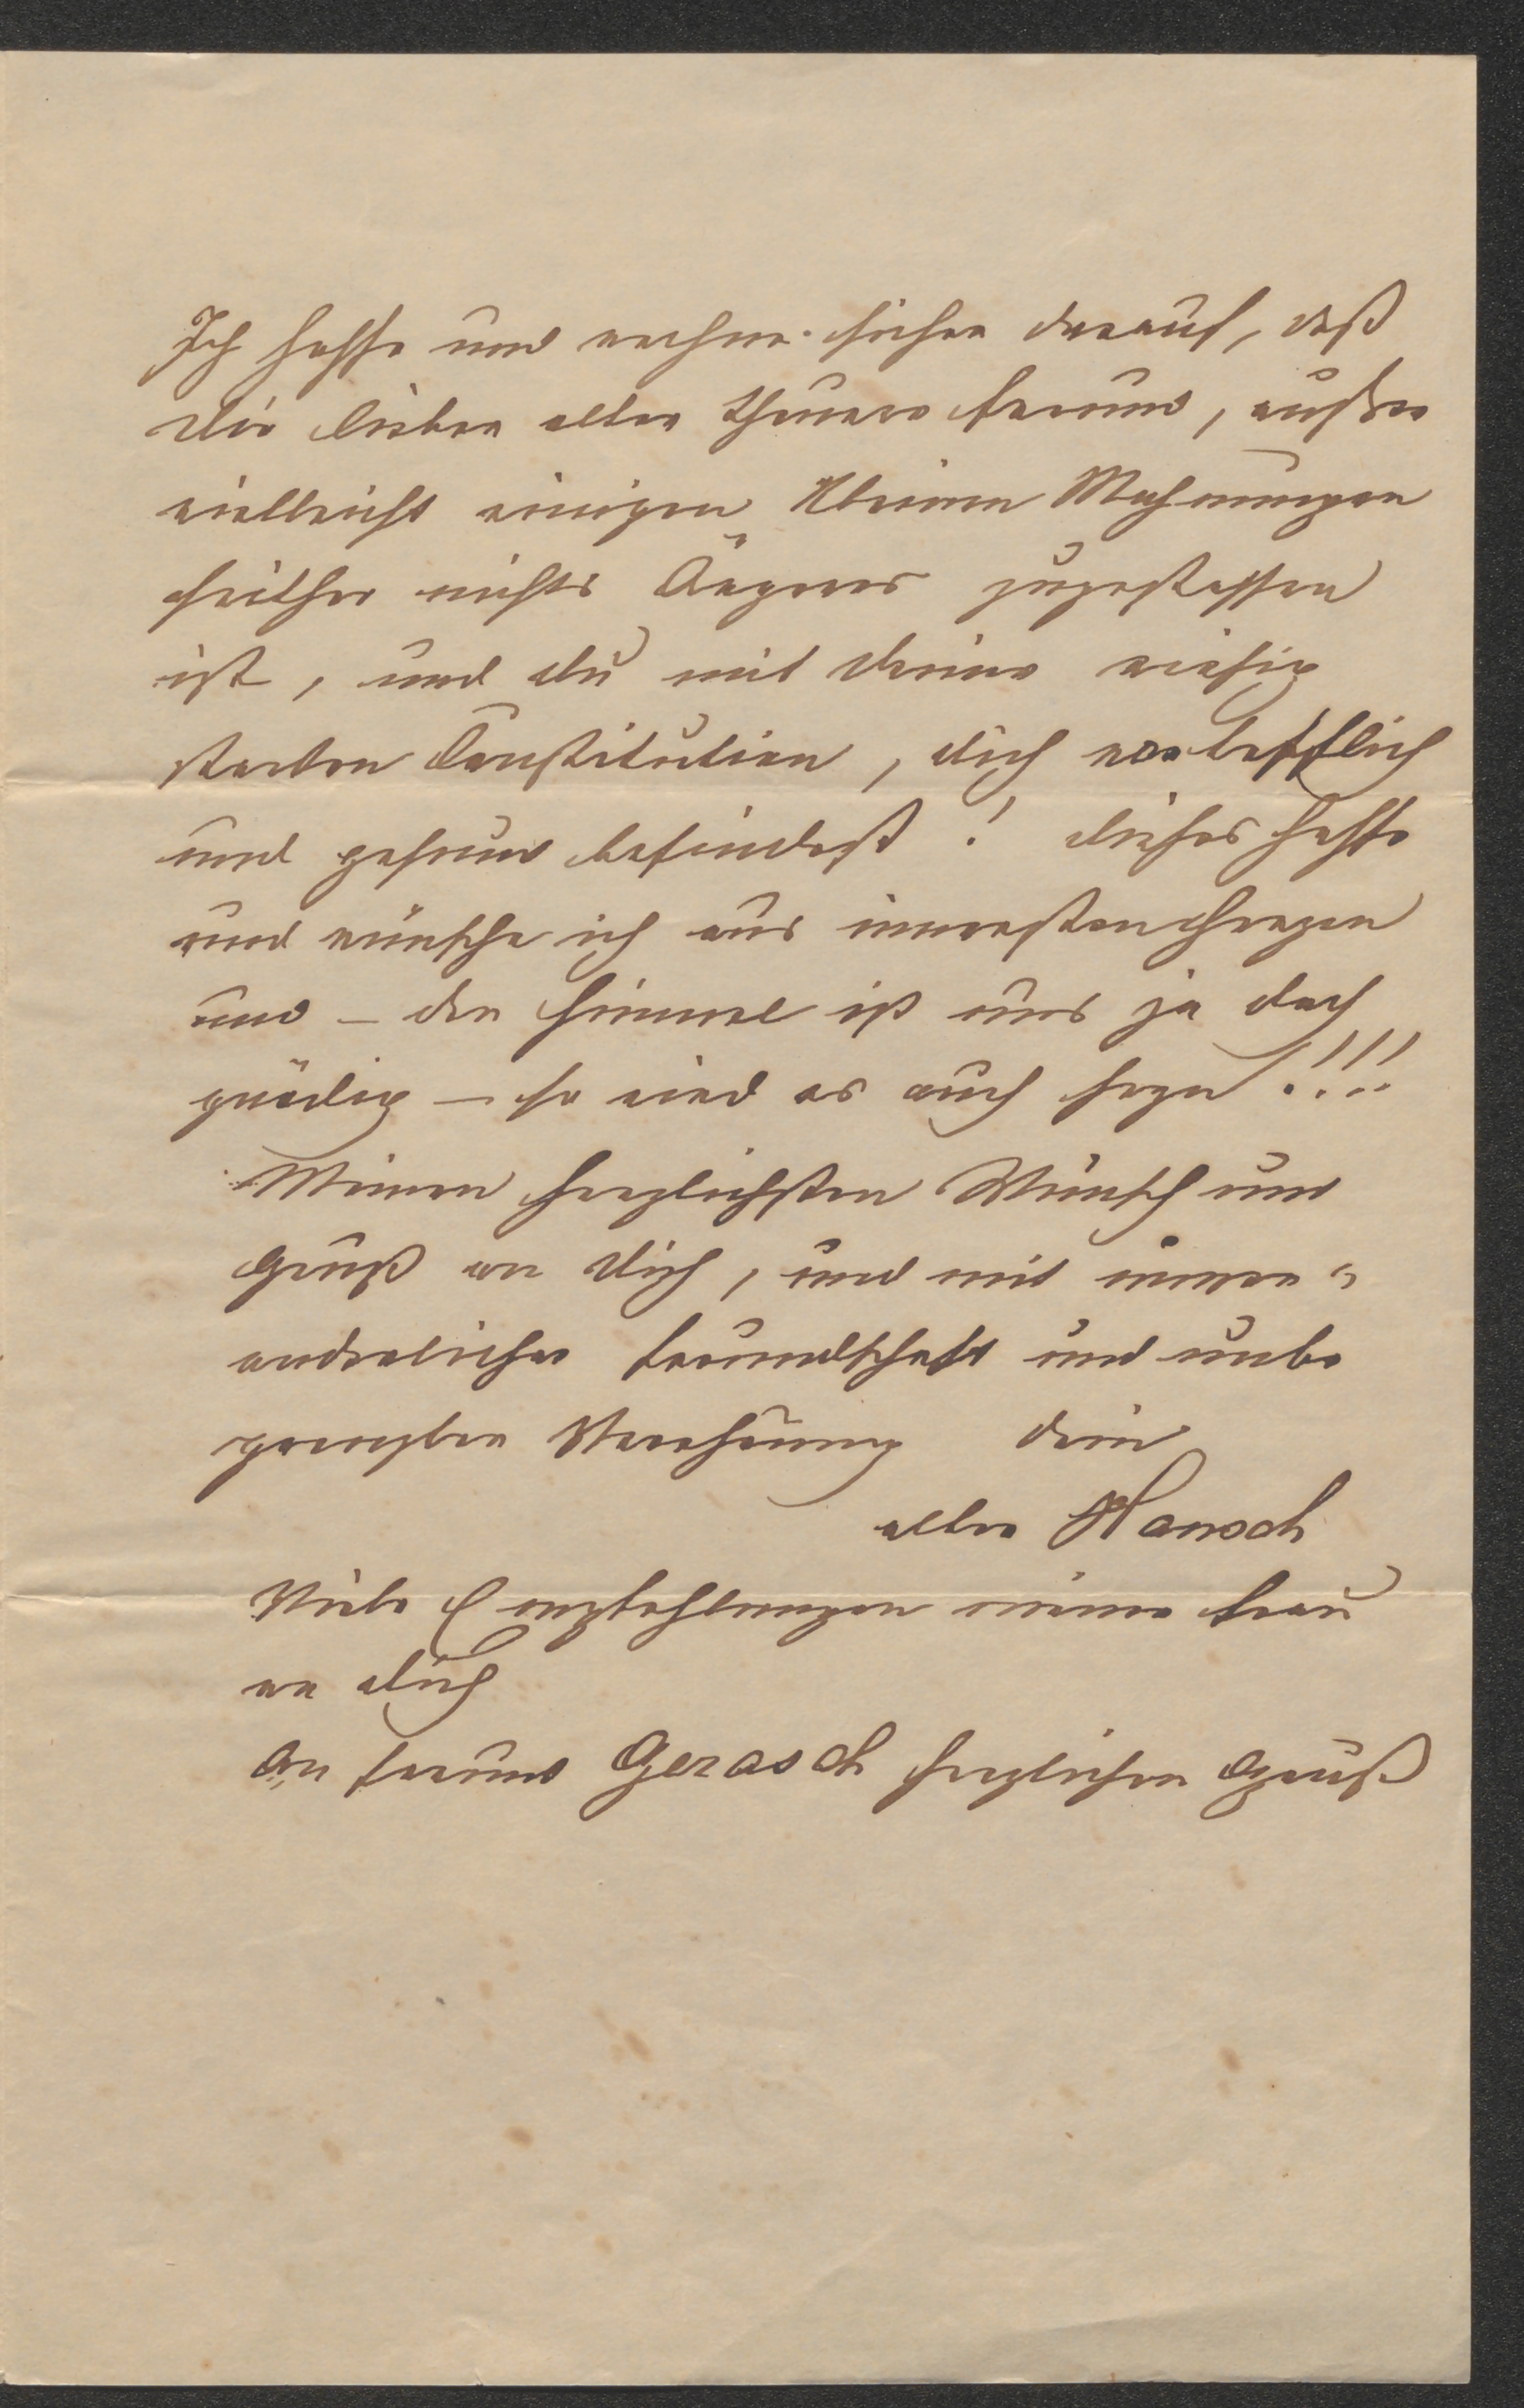 Ich hoffe und rechne sicher darauf, daß
Dir lieber alter theurer Freund, außer
vielleicht einigen kleinen Mahnungen
seither nichts Ärgeres zugestossen
ist, und du mit deiner riesig
starken Constitution, dich vortrefflich
und gesund befindest! dieses hoffe
und wünsche ich aus innersten Herzen
und – der Himmel ist uns ja doch
gnädig – so wird es auch seyn !!!!
Meinen herzlichsten Wunsch und
Gruß an dich, und mit unver„
anderlicher Freundschaft und unbe
grenzter Verehrung dein
alter Hansch
Viele Empfehlungen meiner Frau
an dich
An Freund Gerasch herzlichen Gruß